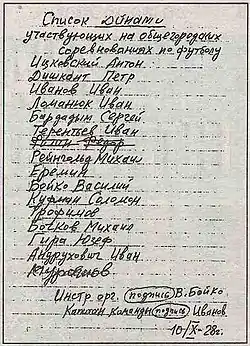 Список Динамо
участвующих на общегородских
соревнованиях по футболу
Ицковский Антон.
Дишкант Петр
Иванов Иван
Ломанюк Иван
Бардадым Сергей
Терентьев Иван
Рейнгольд Михаил
Еремин
Бойко Василий
Курман Соломон
Трофимов
Бочков Михаил
Гира Юзеф
Андрухович Иван
Инстр. орг. (подпись) В. Бойко
Капитан команды (подпись) Иванов
10/X-28г.